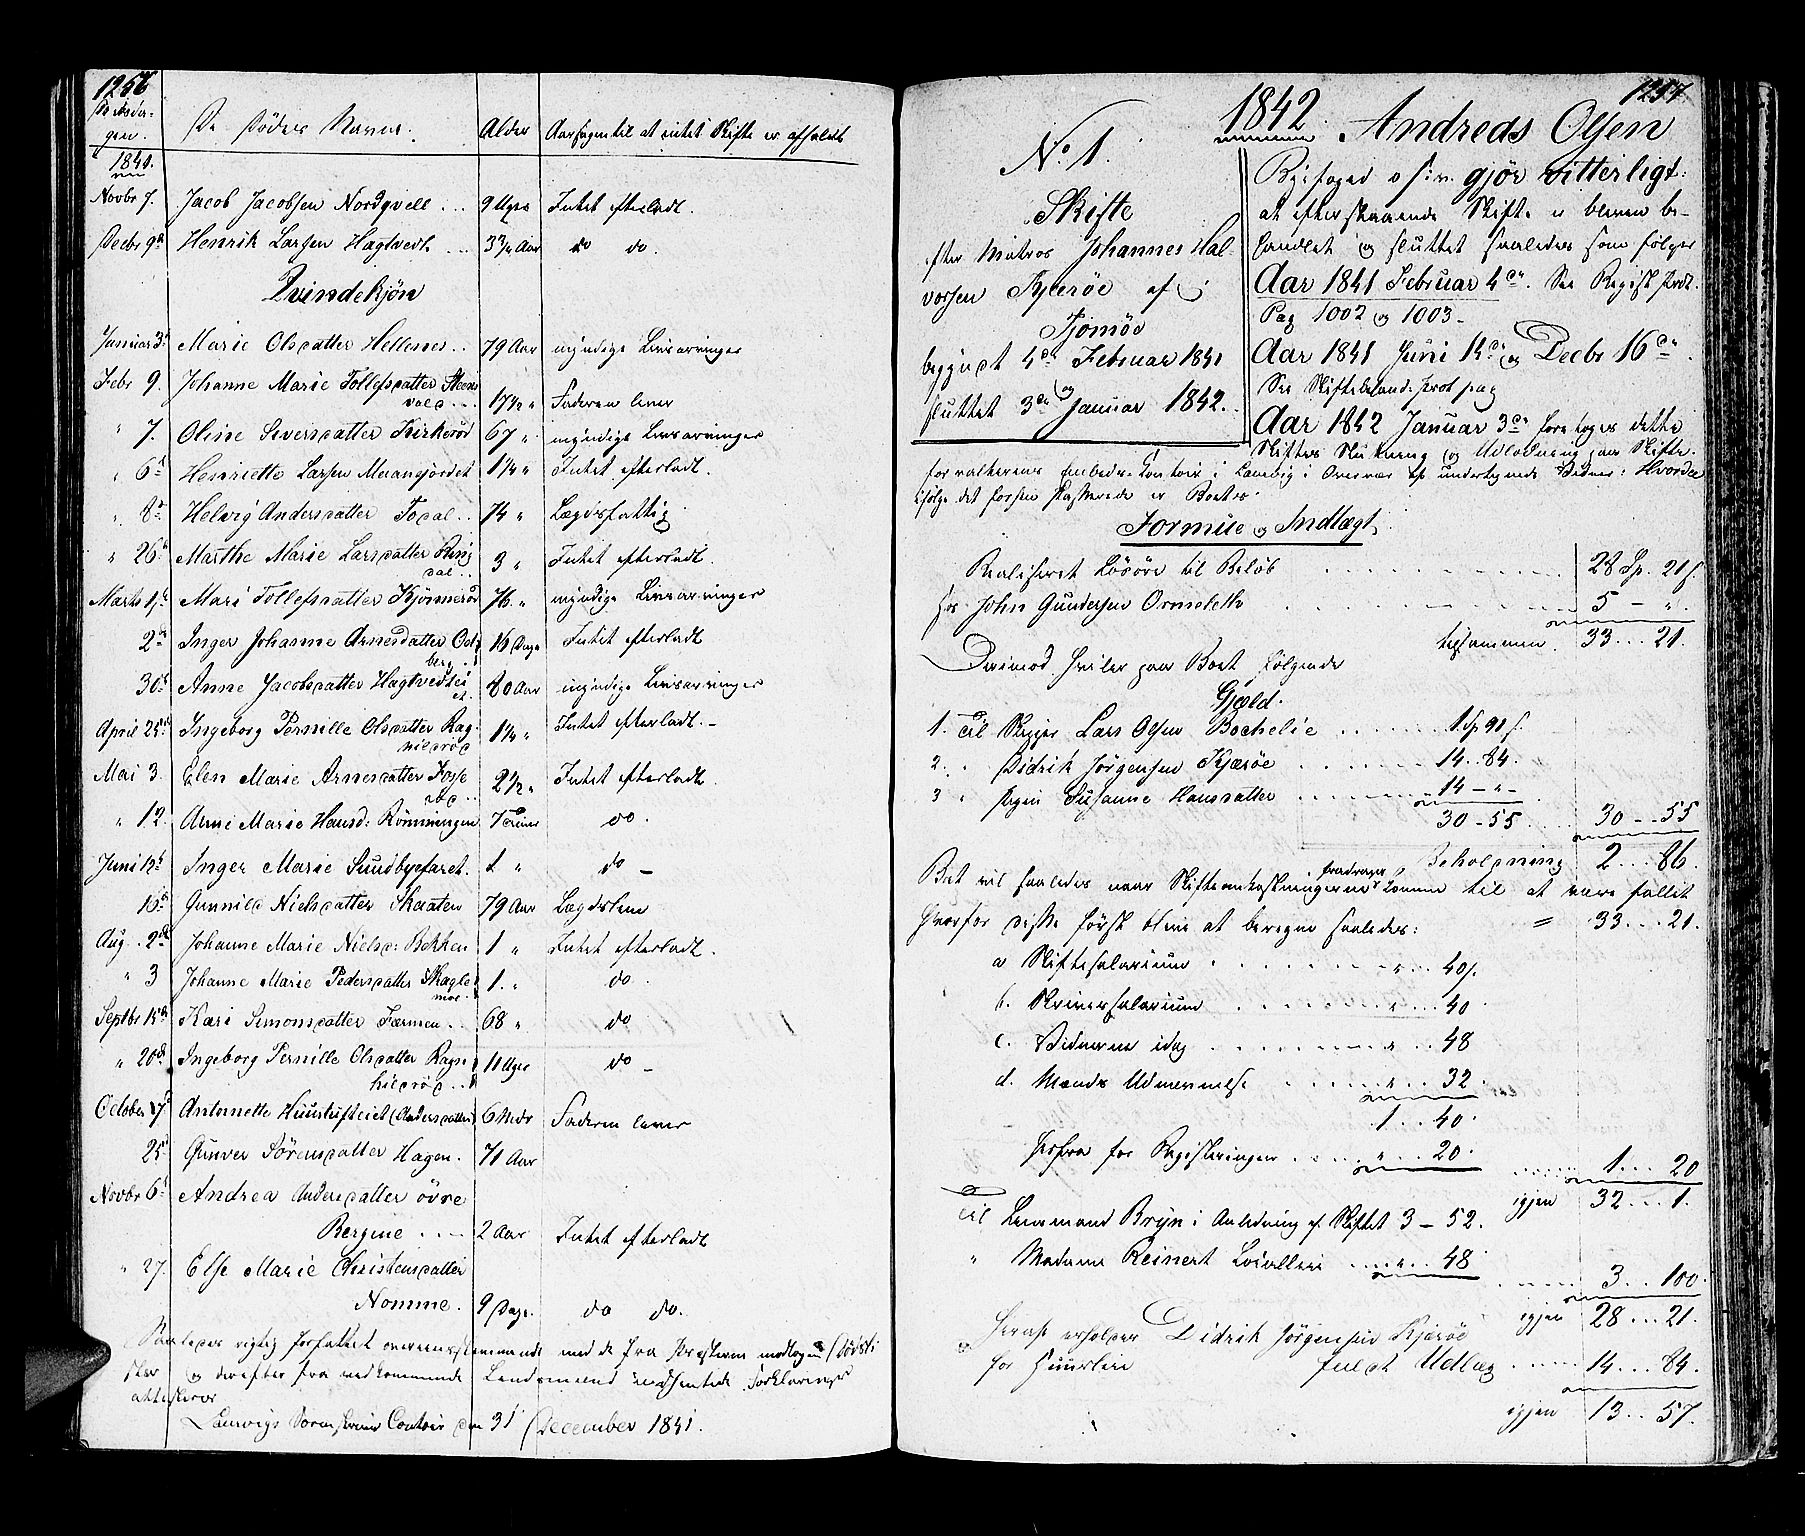 1256
De Dødes Navne. Alder Aarsagen til at intet Skifte er afholdt
1841.
Novbr 7. Jacob Jacobsen Nordqvell ... 9 Uger Intet efterladt.
Decbr 9d Henrik Larsen Hagtvedt ... 3 3/4 Aar do do.
Qvindekjøn
Januar 3d Marie Olsdatter Hellenes .. 79 Aar myndige Livsarvinger
Febr 9. Johanne Marie Tollefsdatter Steens
vald ... 17 1/2 " Faderen lever
" 7. Oline Siversdatter Kirkerød 67 " myndige Livsarvinger
" 6t Henriette Larsen Meransfjordet 1 1/4 " Intet efterladt.
" 8d Helvig Andersdatter Fodal .. 74 " Lægdsfattig
" 26d Marthe Marie Larsdatter Ring
dal .. 3 " Intet efterladt.
Marts 1d Mari Tollefsdatter Kjønnerød 76 " myndige Livsarvinger
2d Inger Johanne Arnesdatter Od
berg 16 Dage Intet efterladt
30d Anne Jacobsdatter Hagtvedtei
et 80 Aar myndige Livsarvinger
April 25d Ingeborg Pernille Olsdatter Rag
nilsrød 1 1/4 " Intet efterladt. -
Mai 3. Elen Marie Arnesdatter Fosse
rød .. 2 1/2 " Intet efterladt.
" 12. Anne Marie Hansd: Rømmingen 7 Timer do.
Juni 12t Inger Marie Sundbyfaret. 1 " do -
16d Gunnild Nielsdatter Skaaten 79 Aar Lægdslem
Aug. 2d Johanne Marie Nielsd: Bakken 1 " Intet efterladt.
" 3 Johanne Marie Pedersdatter Skagle
moe. 1. " do.
Septbr 15d Kari Simonsdatter Færmen .. 68 " do
" 20d Ingeborg Pernille Olsdatter Ragn
hilsrød ... 11 Uger do -
October 17d Antonette Huuslufteiet (Andersdatter) 6 Mdr Faderen lever
25d Gunver Sørensdatter Hagen. 71 Aar
Novbr 6d Andrea Andersdatter øvre
Bergene .... 2 Aar Intet efterladt
" 27. Else Marie Christensdatter
Nomme. 9 Dage. do do.
Saaledes rigtig forfattet overensstemmende med de fra Præsterne modtagne Dødsli
ster og derefter fra vedkommende Lendsmænd indhentede Forklaringer
attesterer
Laurvigs Sorenskriver Contoir den 31 December 1841.
1257
1842. Andreas Olsen
No 1.
Byefoged o s: v. gjør vitterligt:
Skifte
efter Matros Johannes Hal
vorsen Kjærøe af
Tjømøe
begyndt 4de Februar 1841
og
sluttet 3de Januar 1842.
at efterskrevende Skifte er bleven be-
handlet og sluttet saaledes som følger
Aar 1841 Februar 4de. See Regist. Prot.
Pag 1002 og 1003 -
Aar 1841 Juni 14de og Decbr 16de.
See Skiftebehand: Prot pag
Aar 1842 Januar 3de foretoges dette
Skiftes Slutning og Udlodning paa Skifte-
forvalterens Embeds-Contoir i Laurvig i Overvær af undertegnede Vidner: Hvorda
ifølge det forhen passerede er Boets
Formue og Indtægt
Realiseret Løsøre til Beløb ....... 28 Sp. 21 s.
hos John Gundersen Ormeletto ....... 5 - " .
tilsammen 33 ... 21.
Derimod hviler paa Boet følgende
Gjæld.
1. Til Skipper Lars Olsen Bocheliè ...... 1 Sp 91 s.
2. " Didrik Jørgensen Kjærøe ...... 14 .. 84.
3 " Pigen Susanne Hansdatter ....... 14 - " -
30 - 55 ... 30 -- 55
Beholdning 2 ... 86.
Boet vil saaledes naar Skifteomkostningerne fradrages komme til at være fallit
hvorfor disse først blive at beregne saaledes: = 33 ... 21.
a Skiftesalarium ....... " ... 40 s.
b. Skriversalarium ....... " ... 40
c. Vidnerne idag ....... " ... 48
d. Mænds Udnevnelse ....... " ... 32.
1 .. 40.
herfra for Registeringen .... " ... 20. ...... 1 ... 20
igjen 32 ... 1.
Til Lensmand Bryn i Anledning af Skiftet 3 - 52.
" Madame Reinert Localleie .... " ... 48 ...... 3 .. 100.
igjen 28 ... 21.
Heraf erholder Didrik Jørgensen Kjærøe
for Huusleie fuldt Udlæg ...... 14 ... 84.
igjen 13 ... 57.